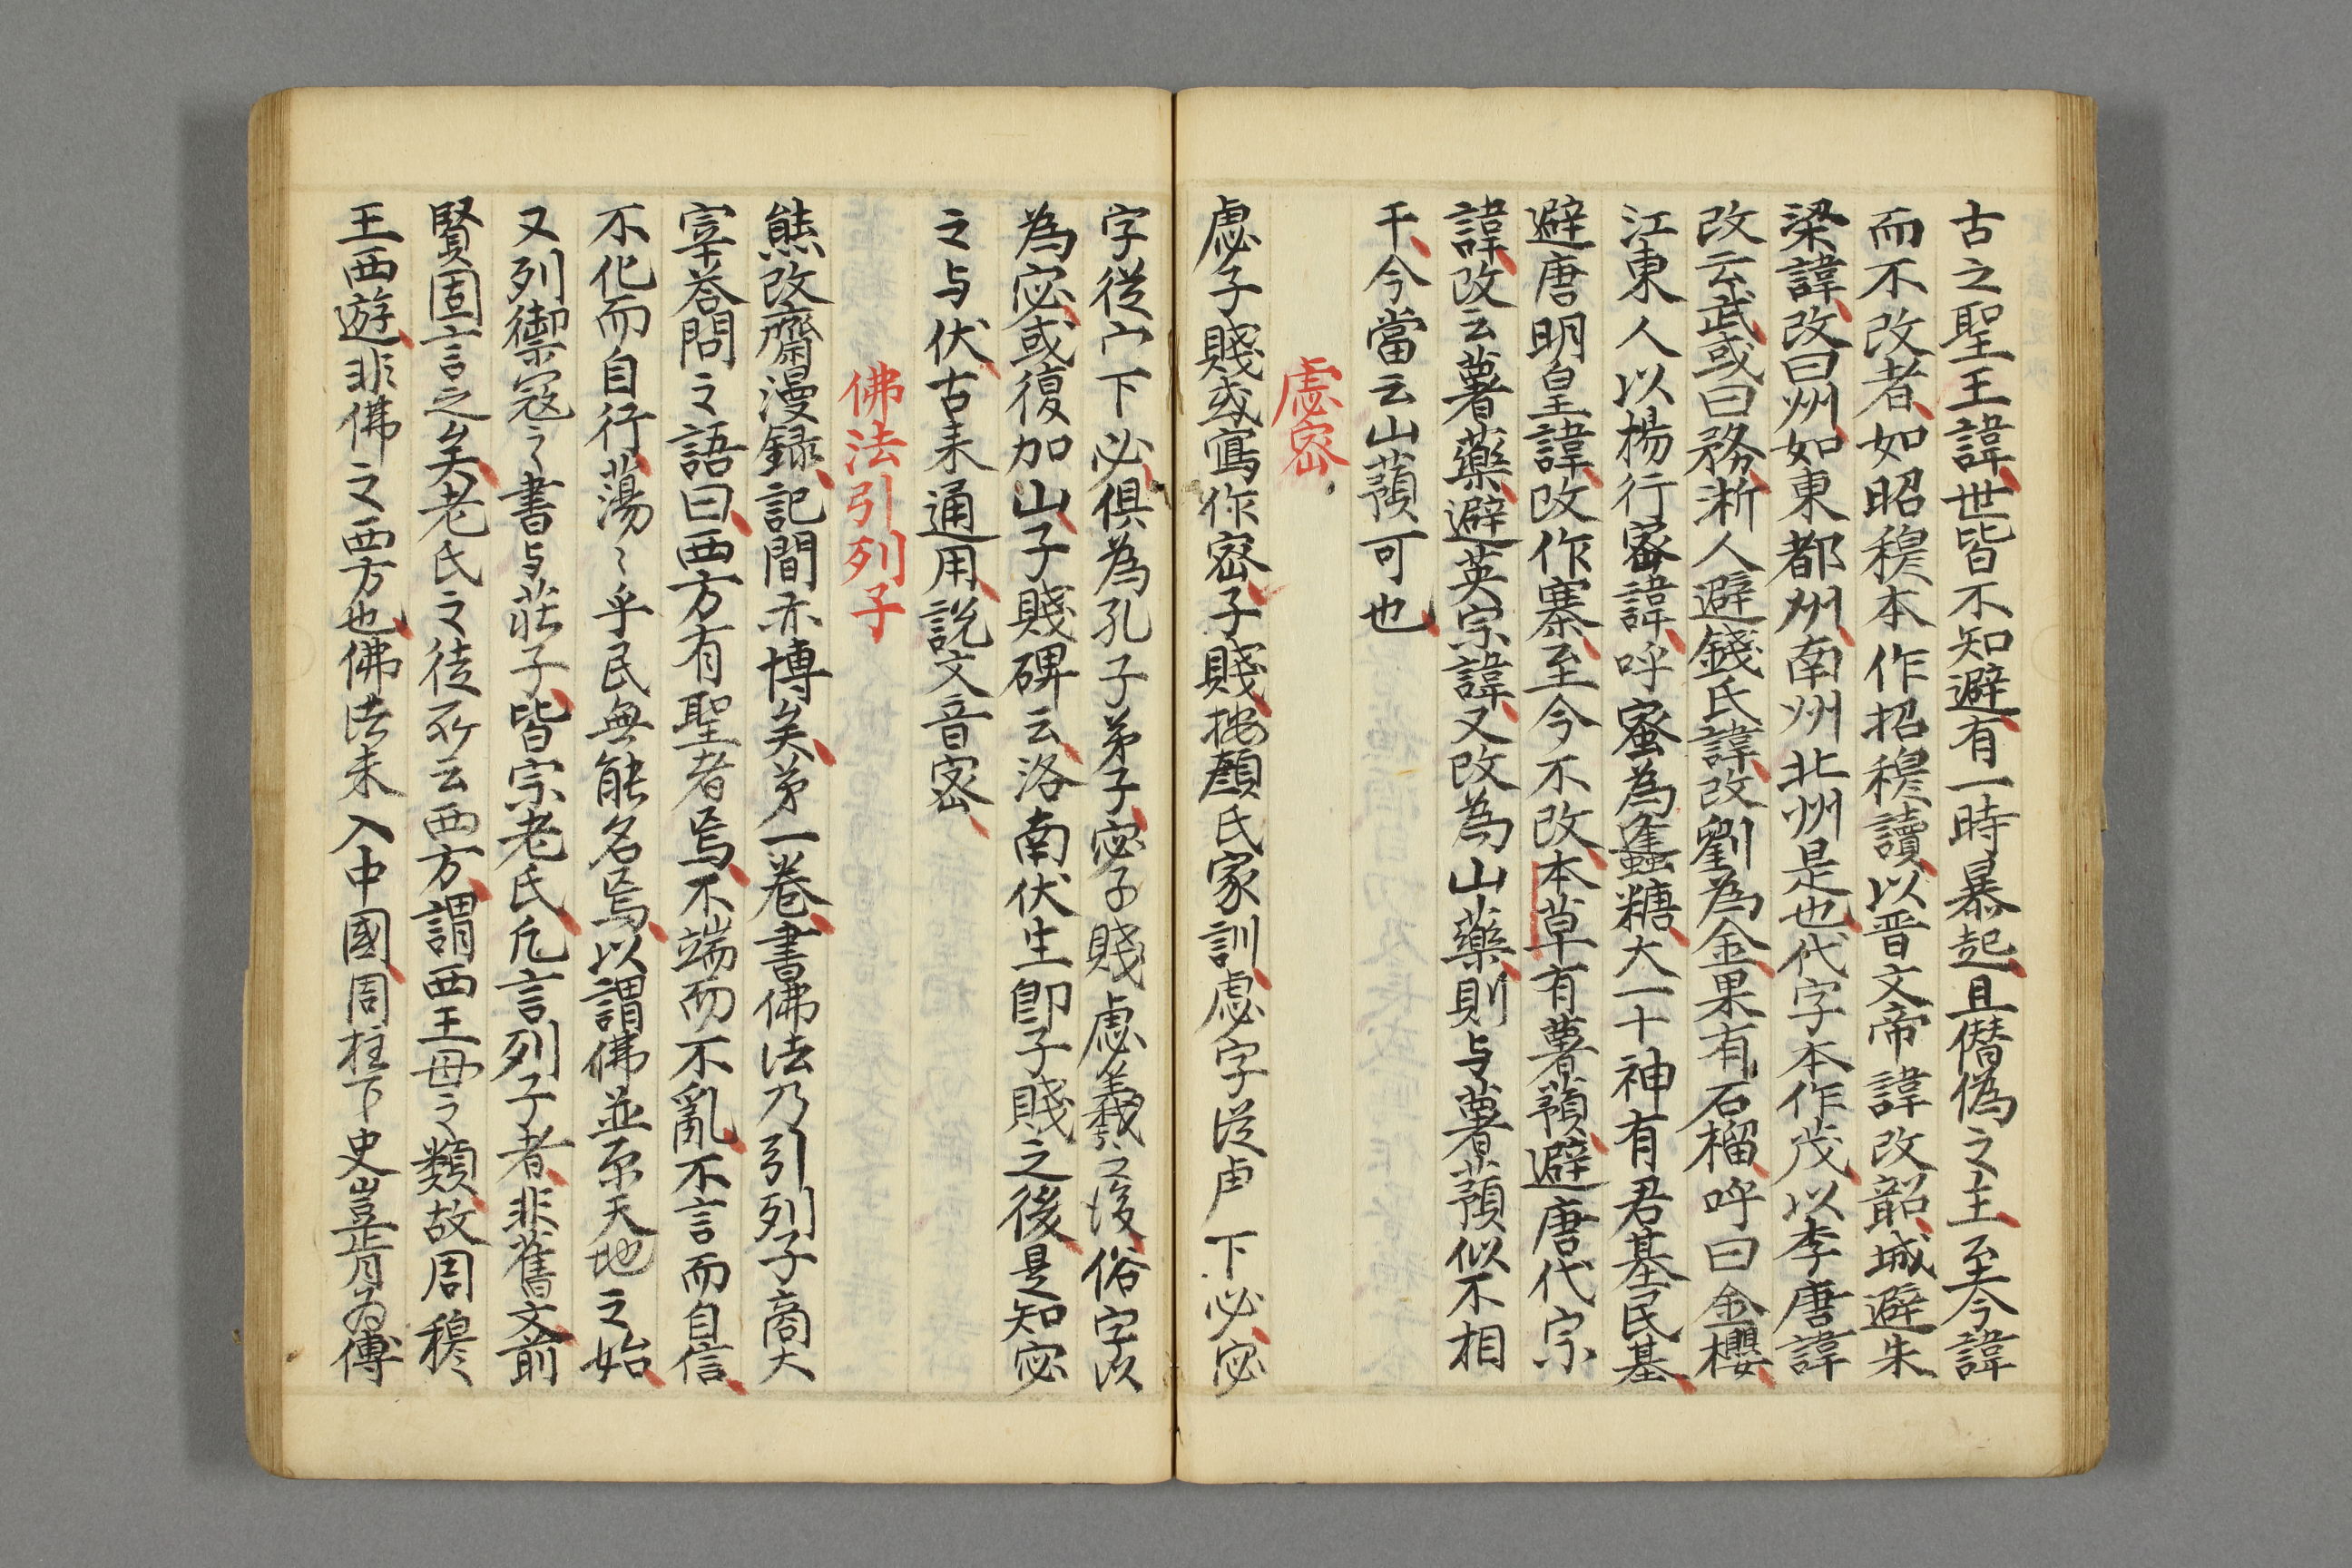 古之聖王諱世皆不知避有一時暴起且僭偽之主至今諱
而不改者如昭穆本作招穆讀以晋文帝諱改韶城避朱
梁諱改曰州如東都州南州北州是也代字本作茂以李唐諱
改云武或曰務淅人避錢氏諱改劉為金果有石榴呼曰金櫻
江東人以楊行密諱呼蜜為蜂糖大一十神有君基民基
避唐明皇諱改作寨至今不改本草有薯蕷避唐代宗
諱改云薯藥避英宗諱又改為山藥則与薯蕷似不相
干今當云山蕷可也
虙密
虙子賤或寫作密子賤按顏氏家訓虙字從虍下必宓
字從宀下必俱為孔子弟子宓子賤虙羲之後俗字以
為宓或復加山子賤碑云洛南伏生即子賤之後是知宓
之与伏古来通用說文音密
佛法引列子
熊改齋漫録記間亦博矣第一巻書佛法乃引列子商大
宰荅問之語曰西方有聖者焉不端而不亂不言而自信
不化而自行蕩〻乎民無能名焉以謂佛並原天地之始
又列禦冦之書与荘子皆宗老氏凡言列子者非舊文前
賢固言之矣老氏之徒所云西方謂西王母之類故周穆
王西遊非佛之西方也佛法未入中國周柱下史豈肯為傳